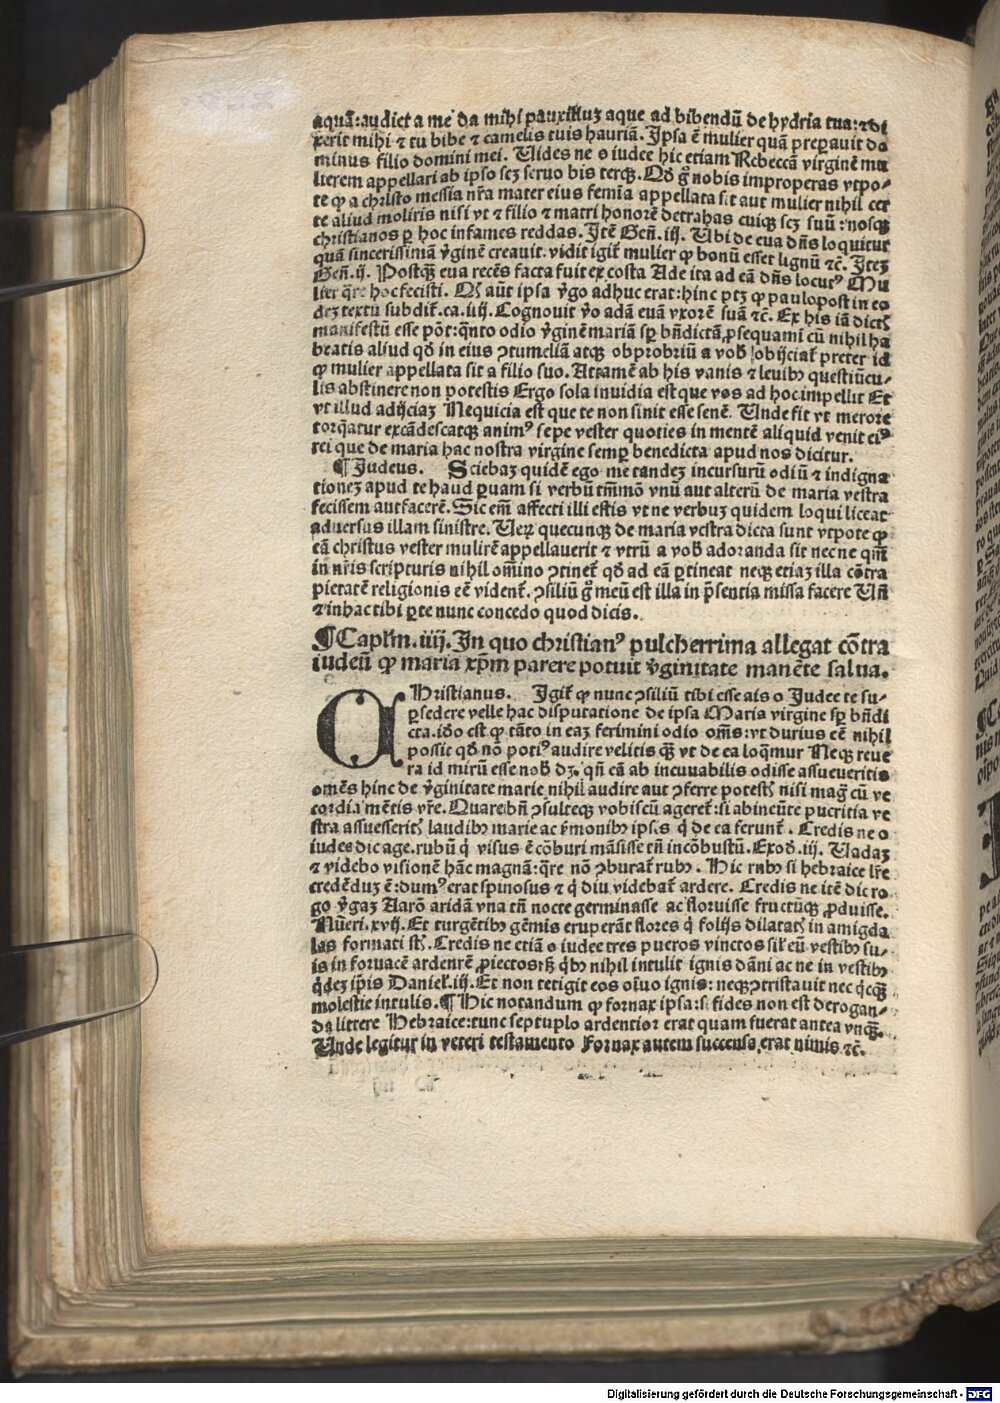 aquā: audiet a me da mihi pauxilluʒ aque ad bibendū de hydria tua: ⁊ di
xerit mihi ⁊ tu bibe ⁊ camelis tuis hauriā. Ipsa ē mulier quā preꝑauit do
minus filio domini mei. Uides ne o iudee hic etiam Rebeccā virginē mu
lierem appellari ab ipso scʒ seruo bis terqꝫ. Qd̄ gͦ nobis improperas vtpo⸗
te ꝙ a christo messia nr̄a mater eius femīa appellata sit aut mulier nihil cer
te aliud moliris nisi vt ⁊ filio ⁊ matri honorē detrahas cuiqꝫ scʒ suū: nosqꝫ
christianos ꝑ hoc infames reddas. Itē Geñ. iij. Ubi de eua dn̄s loquitur
quā sincerissimā v̄ginē creauit. vidit igit̄ mulier ꝙ bonū esset lignū ⁊c̄. Iteʒ
Geñ. ij. Postqꝫ eua recēs facta fuit ex costa Ade ita ad eā dn̄s locutꝰ Mu
lier q̄re hoc fecisti. Qͥ aūt ipsa v̄go adhuc erat: hinc ptʒ ꝙ paulo post in eo
deʒ textu subdit̄. ca. iiij. Cognouit v̄o adā euā vxorē suā ⁊c̄. Ex his iā dictꝭ
manifestū esse pōt: q̄nto odio v̄ginē mariā sꝑ bn̄dictā ꝓsequamī cū nihil ha
beatis aliud qd̄ in eius ꝯtumeliā atqꝫ obprobriū a vob̄ obijciat̄ preter id
ꝙ mulier appellata sit a filio suo. Attamē ab his vanis ⁊ leuibꝰ questiūcu⸗
lis abstinere non potestis Ergo sola inuidia est que vos ad hoc impellit Et
vt illud adijciaʒ Nequicia est que te non sinit esse senē. Unde fit vt merore
torq̄atur excādescatqꝫ animꝰ sepe vester quoties in mentē aliquid venit eiꝰ
rei que de maria hac nostra virgine semꝑ benedicta apud nos dicitur.
¶ Judeus. Sciebaʒ quidē ego me tandeʒ incursurū odiū ⁊ indigna
tioneʒ apud te haud ꝑuam si verbū tm̄mō vnū aut alterū de maria vestra
fecissem aut facerē. Sic em̄ affecti illi estis vt ne verbuʒ quidem loqui liceat
aduersus illam sinistre. Ueꝝ quecunqꝫ de maria vestra dicta sunt vtpote ꝙ
eā christus vester mulierē appellauerit ⁊ vtrū a vob̄ adoranda sit necne qm̄
in nr̄is scripturis nihil om̄ino ꝯtinet̄ qd̄ ad eā ꝑtineat neqꝫ etiaʒ illa cōtra
pietatē religionis eē vident̄. ꝯsiliū gͦ meū est illa in p̄sentia missa facere Un̄
⁊ in hac tibi ꝑte nunc concedo quod dicis.
¶ Caplm̄. iiij. In quo christianꝰ pulcherrima allegat cōtra
iudeū ꝙ maria xp̄m parere potuit v̄ginitate manēte salua.
CHristianus. Igit̄ ꝙ nunc ꝯsiliū tibi esse ais o Judee te su⸗
ꝑsedere velle hac disputatione de ipsa Maria virgine sꝑ bn̄di
cta. id̄o est ꝙ tāto in eaʒ ferimini odio om̄s: vt durius eē nihil
possit qd̄ nō potiꝰ audire velitis qꝫ vt de ea loq̄mur Neqꝫ reue
ra id mirū esse nob̄ dʒ. qn̄ eā ab incunabilis odisse assueueritis
omēs hinc de v̄ginitate marie nihil audire aut ꝓferre potestꝭ nisi magͣ cū ve
cordia mētis vr̄e. Quare bn̄ ꝯsulteqꝫ vobiscū ageret̄: si ab ineūte pueritia ve
stra assuesseritꝭ laudibꝰ marie ac ẜmonibꝰ ipsis q̄ de ea ferunt̄. Credis ne o
iudee dic age. rubū qͥ visus ē cōburi māsisse tn̄ incōbustū. Exod̄. iij. Uadaʒ
⁊ videbo visionē hāc magnā: q̄re nō ꝯburat̄ rubꝰ. Hic rubꝰ si hebraice lr̄e
credēduʒ ē: dumꝰ erat spinosus ⁊ qͥ diu videbat̄ ardere. Credis ne itē dic ro
go v̄gaʒ Aarō aridā vna tn̄ nocte germinasse ac floruisse fructūqꝫ ꝓduisse.
Nūeri. xvij. Et turgētibꝰ gēmis eruperāt flores qͥ folijs dilatatꝭ in amigda
las formati st̄. Credis ne etiā o iudee tres pueros vinctos sil̄ cū vestibꝰ su⸗
is in fornacē ardentē ꝓiectos: q̄bꝰ nihil intulit ignis dāni ac ne in vestibꝰ
q̄deʒ ip̄is Daniel̄. iij. Et non tetigit eos oīno ignis: neqꝫ ꝯtristauit nec q̄cqꝫ
molestie intulis. ¶ Hic notandum ꝙ fornax ipsa: si fides non est derogan⸗
da littere Hebraice: tunc septuplo ardentior erat quam fuerat antea vnqꝫ.
Unde legitur in veteri testamento Fornax autem succensa erat nimis ⁊c̄.
Digitalisierung gefördert durch die Deutsche Forschungsgemeinschaft - DFG